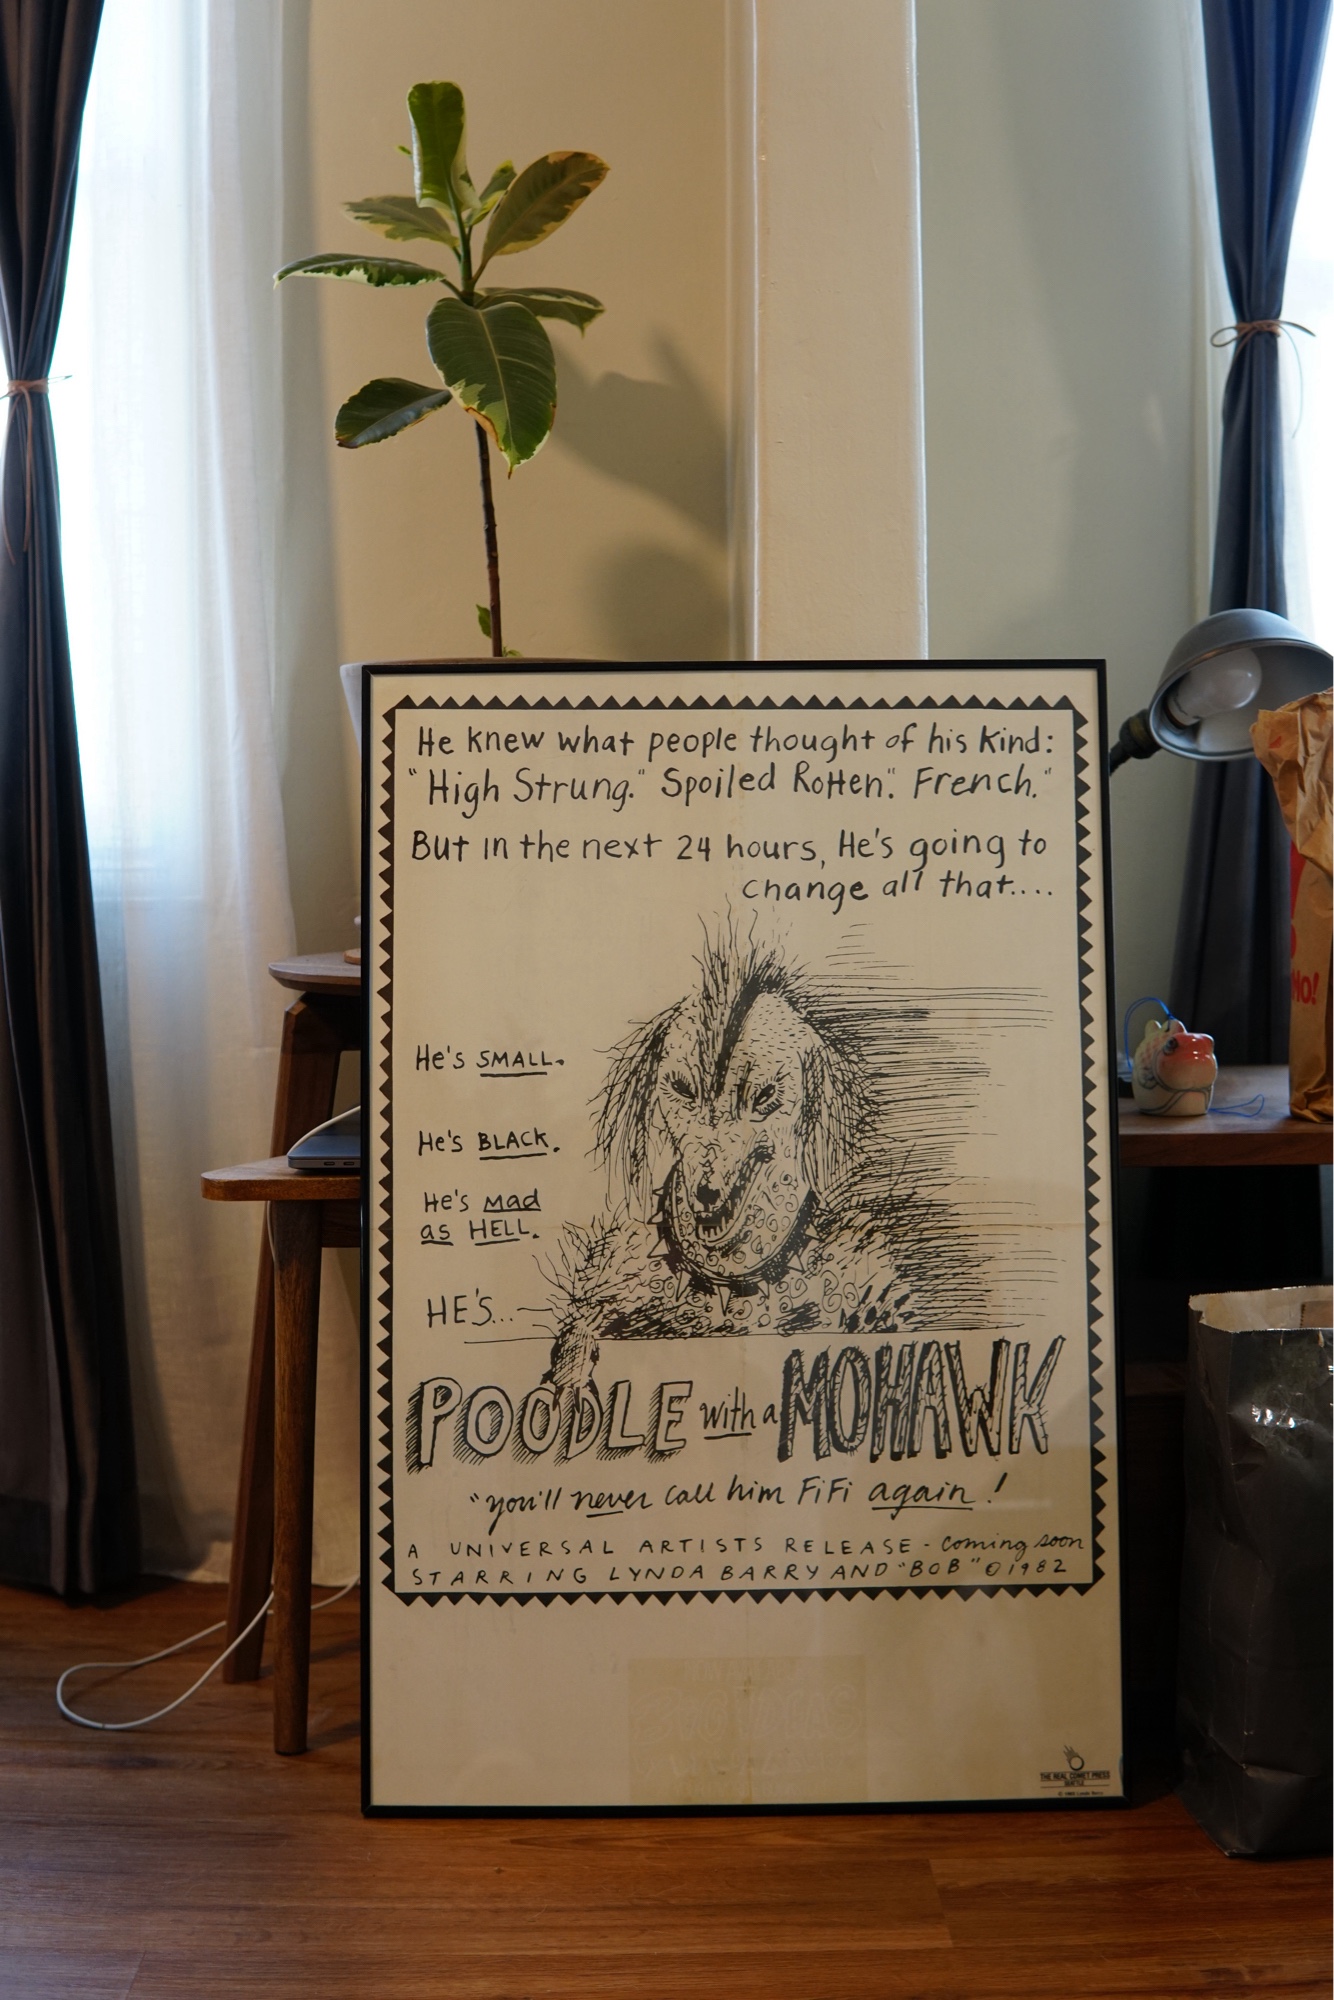 He knew what people thought of his kind:
"High Strung." Spoiled Rotten." French."
But in the next 24 hours, He's going to
change all that....
He's SMALL.
He's BLACK.
He's mad
as HELL.
HE'S...
POODLE with a MOHAWK
"you'll never call him FiFi again!
A UNIVERSAL ARTISTS RELEASE - coming soon
STARRING LYNDA BARRY AND "BOB" © 1982
THE REAL COMET PRESS
SEATTLE
HO!